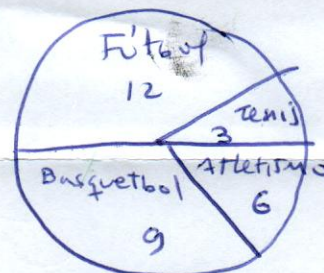 Fútbol
12
Tenis
3
Atletismo
6
Basquetbol
9